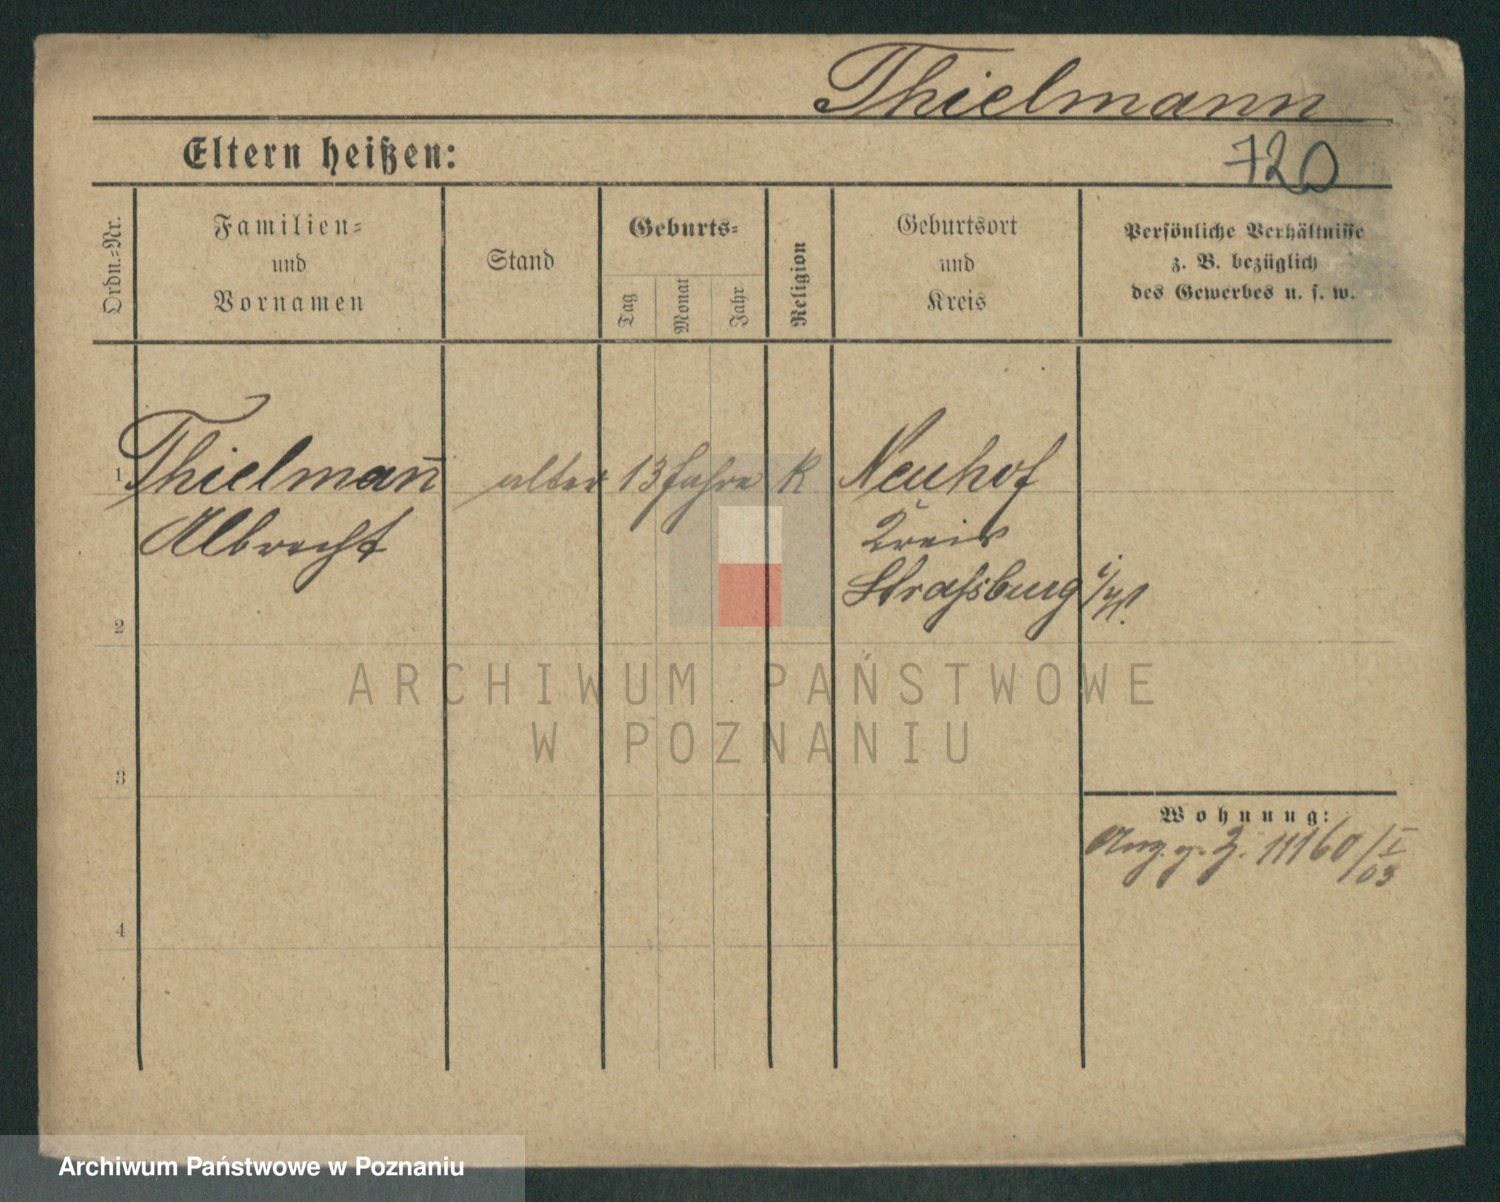 Thielmann
Eltern heißen:
720
Ordn.=Nr.
Familien=
und
Vornamen
Stand
Geburts=
Tag
Monat
Jahr
Religion
Geburtsort
und
Kreis
Persönliche Verhältnisse
z. B. bezüglich
des Gewerbes u. s. w.
1 Thielmañ alter 13 Jahre K Neuhof
Albrecht Kreis
Strassburg i/W.
2
3
4
Wohnung:
11160/I
03
ARCHIWUM PAŃSTWOWE
W POZNANIU
Archiwum Państwowe w Poznaniu